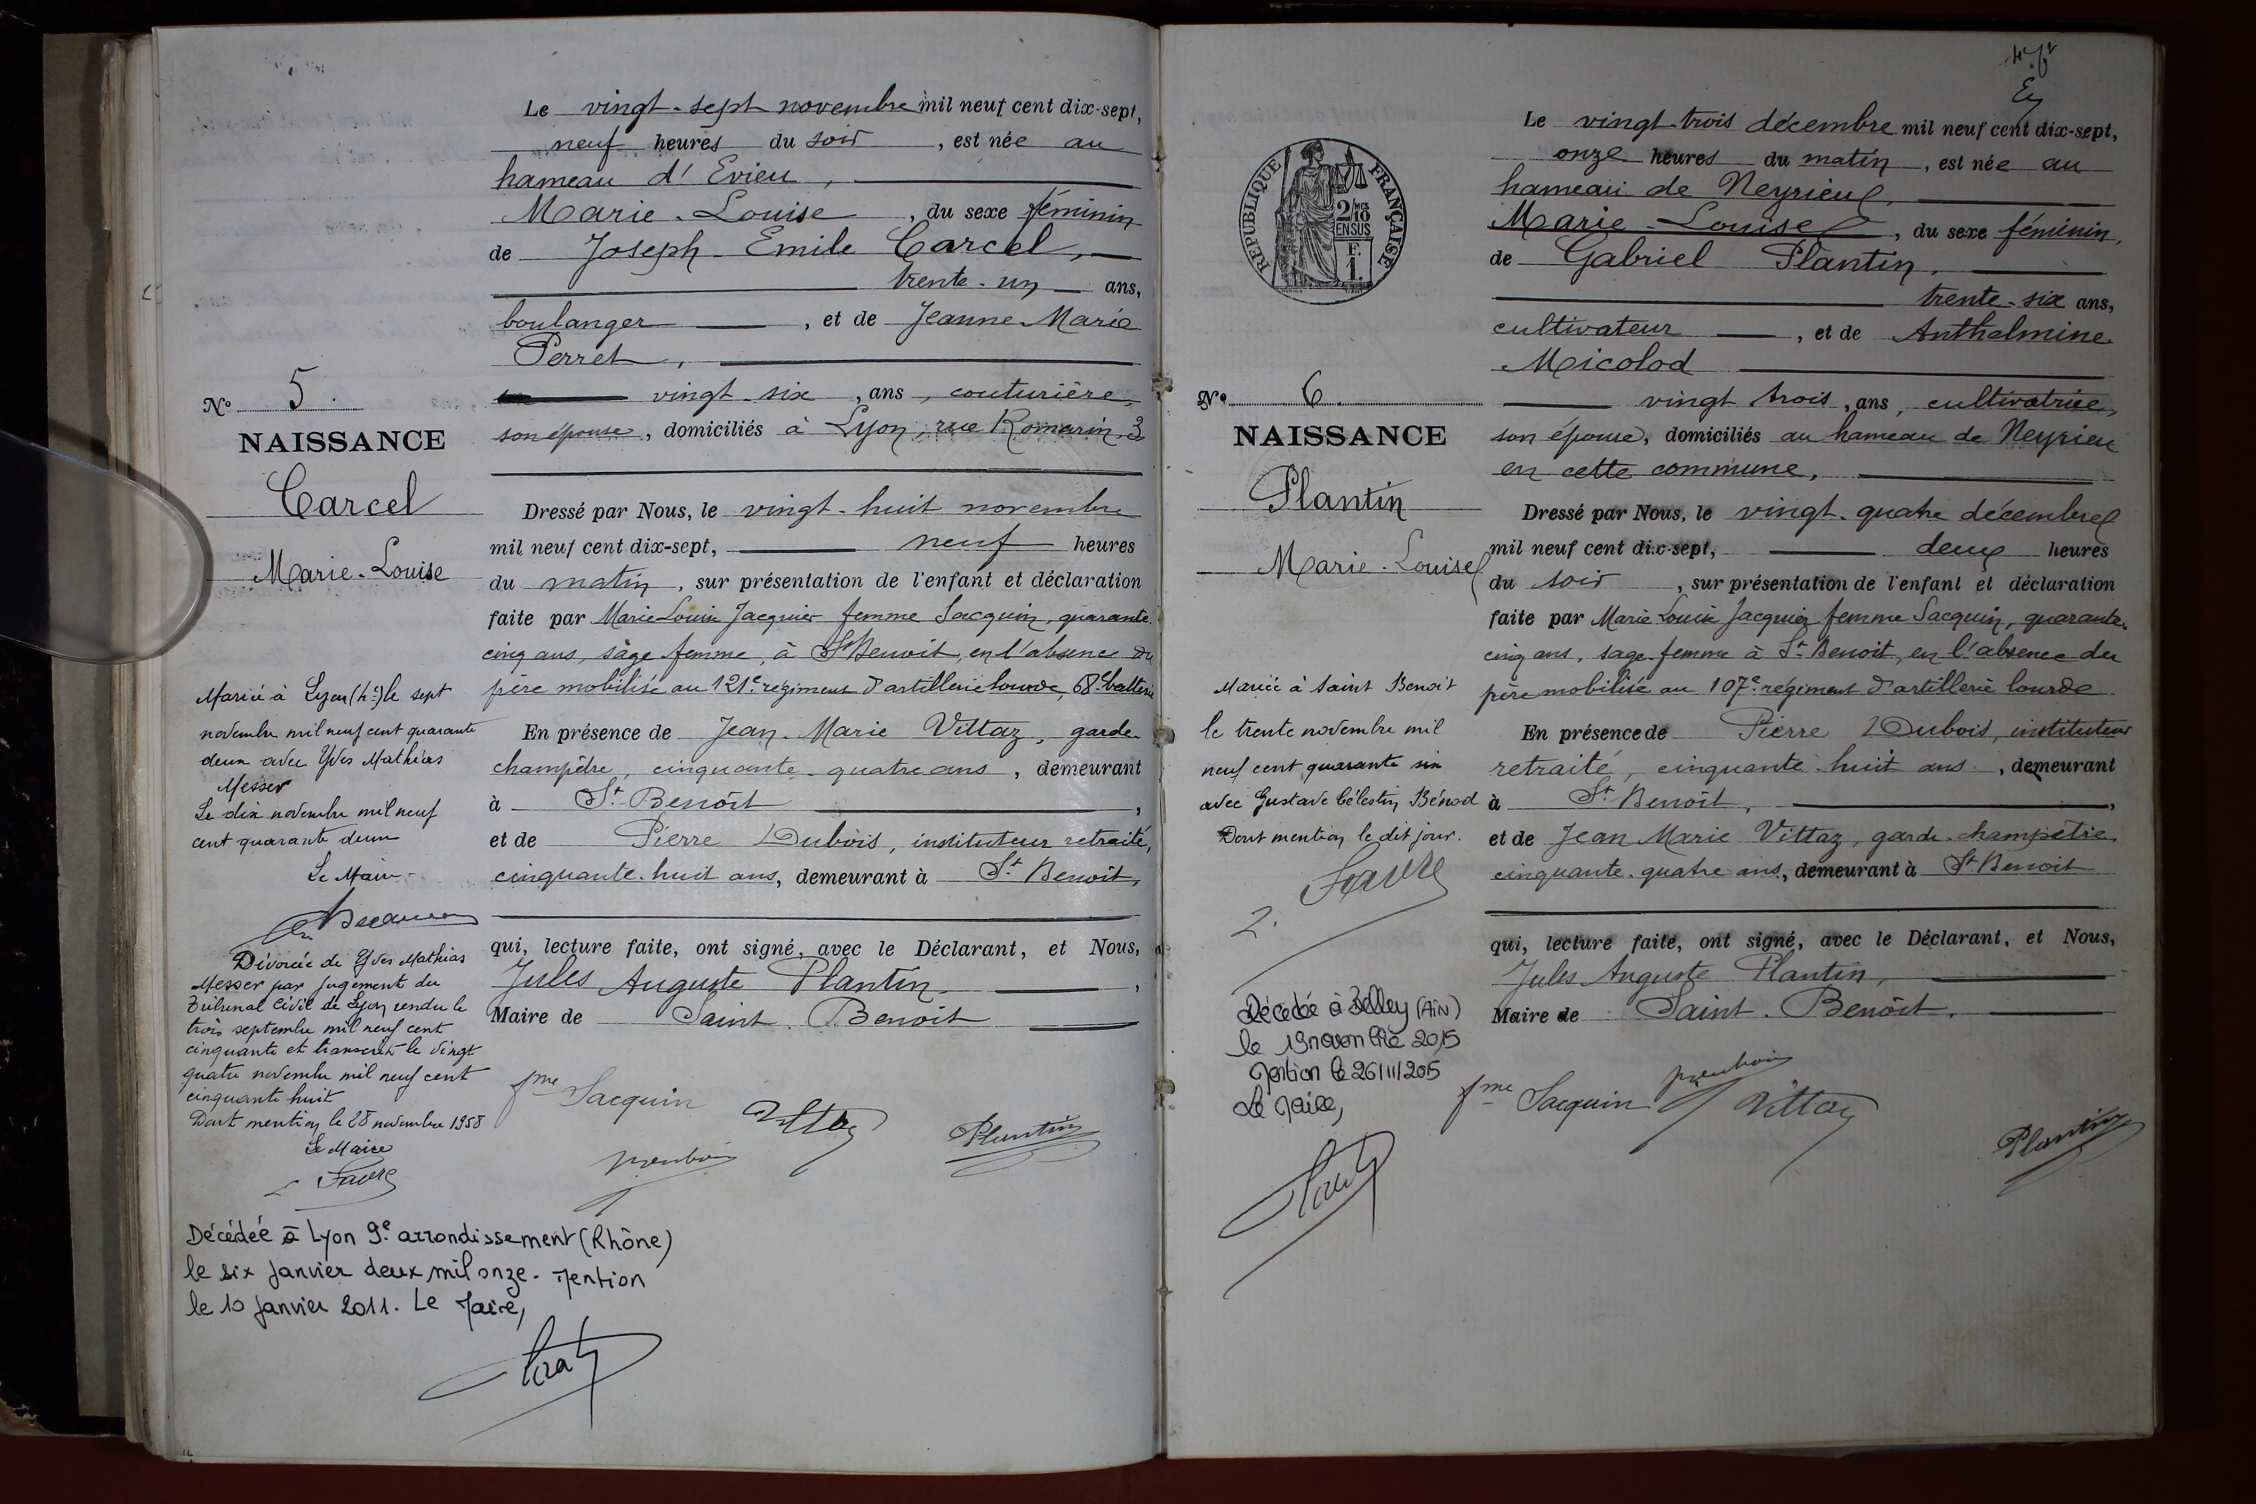 Le vingt-sept novembre mil neuf cent dix-sept,
neuf heures du soir, est née au
hameau d'Evieu,
Marie-Louise, du sexe féminin
de Joseph-Emile Carcel,
trente-un ans,
boulanger, et de Jeanne-Marie
Perret,
vingt-six, ans, couturière,
son épouse, domiciliés à Lyon, rue Romarin, 3
N° 5.
NAISSANCE
Carcel
Marie-Louise
Dressé par Nous, le vingt-huit novembre
mil neuf cent dix-sept, neuf heures
du matin, sur présentation de l'enfant et déclaration
faite par Marie Louise Jacquier femme Sacquin, quarante
cinq ans, sage femme, à St Benoit, en l'absence du
père mobilisé au 121e régiment d'artillerie lourde, 68e batterie
En présence de Jean-Marie Vittaz, garde
champêtre, cinquante-quatre ans, demeurant
à St-Benoit,
et de Pierre Dubois, instituteur retraité,
cinquante-huit ans, demeurant à St Benoit,
qui, lecture faite, ont signé, avec le Déclarant, et Nous,
Jules Auguste Plantin,
Maire de Saint-Benoit
fme Sacquin
Vittaz
Plantin
Mariée à Lyon (4e) le sept
novembre mil neuf cent quarante
deux avec Yves Mathias
Messer
Le dix novembre mil neuf
cent quarante deux
Le Maire
Divorcée de Yves Mathias
Messer par jugement du
Tribunal Civil de Lyon rendu le
trois septembre mil neuf cent
cinquante et transcrit le vingt
quatre novembre mil neuf cent
cinquante huit
Dont mention le 28 novembre 1958
Le Maire
Favre
Décédée à Lyon 9e arrondissement (Rhône)
le six janvier deux mil onze. Mention
le 10 janvier 2011. Le Maire,
Le vingt-trois décembre mil neuf cent dix-sept,
onze heures du matin, est née au
hameau de Neyrieu,
Marie-Louise, du sexe féminin,
de Gabriel Plantin,
trente-six ans,
cultivateur, et de Anthelmine
Micolod
vingt trois, ans, cultivatrice,
son épouse, domiciliés au hameau de Neyrieu
en cette commune,
REPUBLIQUE FRANÇAISE
2/10
EN SUS
F.
1.
N° 6.
NAISSANCE
Plantin
Marie-Louise
Dressé par Nous, le vingt-quatre décembre
mil neuf cent dix-sept, deux heures
du soir, sur présentation de l'enfant et déclaration
faite par Marie Louise Jacquier femme Sacquin, quarante-
cinq ans, sage-femme à St Benoit, en l'absence du
père mobilisé au 107e régiment d'artillerie lourde
En présence de Pierre Dubois, instituteur
retraité, cinquante-huit ans, demeurant
à St-Benoit,
et de Jean Marie Vittaz, garde-champêtre,
cinquante-quatre ans, demeurant à St Benoit
qui, lecture faite, ont signé, avec le Déclarant, et Nous,
Jules Auguste Plantin,
Maire de Saint-Benoit.
fme Sacquin
Vittaz
Plantin
Mariée à Saint Benoit
le trente novembre mil
neuf cent quarante six
avec Gustave Célestin Bénod
Dont mention le dit jour.
Favre
2.
Décédée à Belley (AIN)
le 19 novembre 2015
Mention le 26/11/2015
Le Maire,